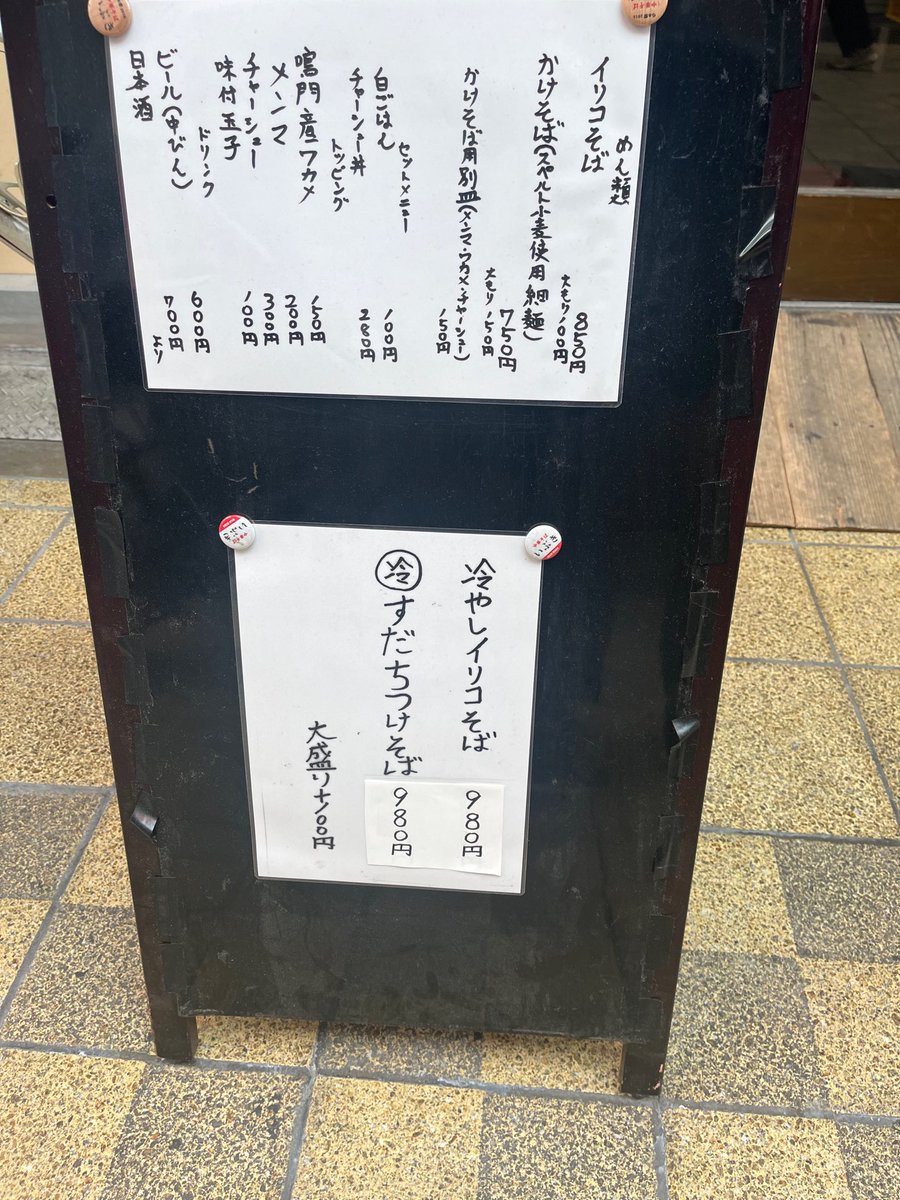 めん類
イリコそば 850円
大もり100円
かけそば(スペルト小麦使用細麺) 750円
大もり150円
かけそば用別皿(メンマ・ワカメ・チャーシュー) 150円
セットメニュー
白ごはん 100円
チャーシュー丼 280円
トッピング
鳴門産ワカメ 150円
メンマ 200円
チャーシュー 300円
味付玉子 100円
ドリンク
ビール(中びん) 600円
日本酒 700円より
冷やしイリコそば 980円
冷すだちつけそば 980円
大盛り+100円